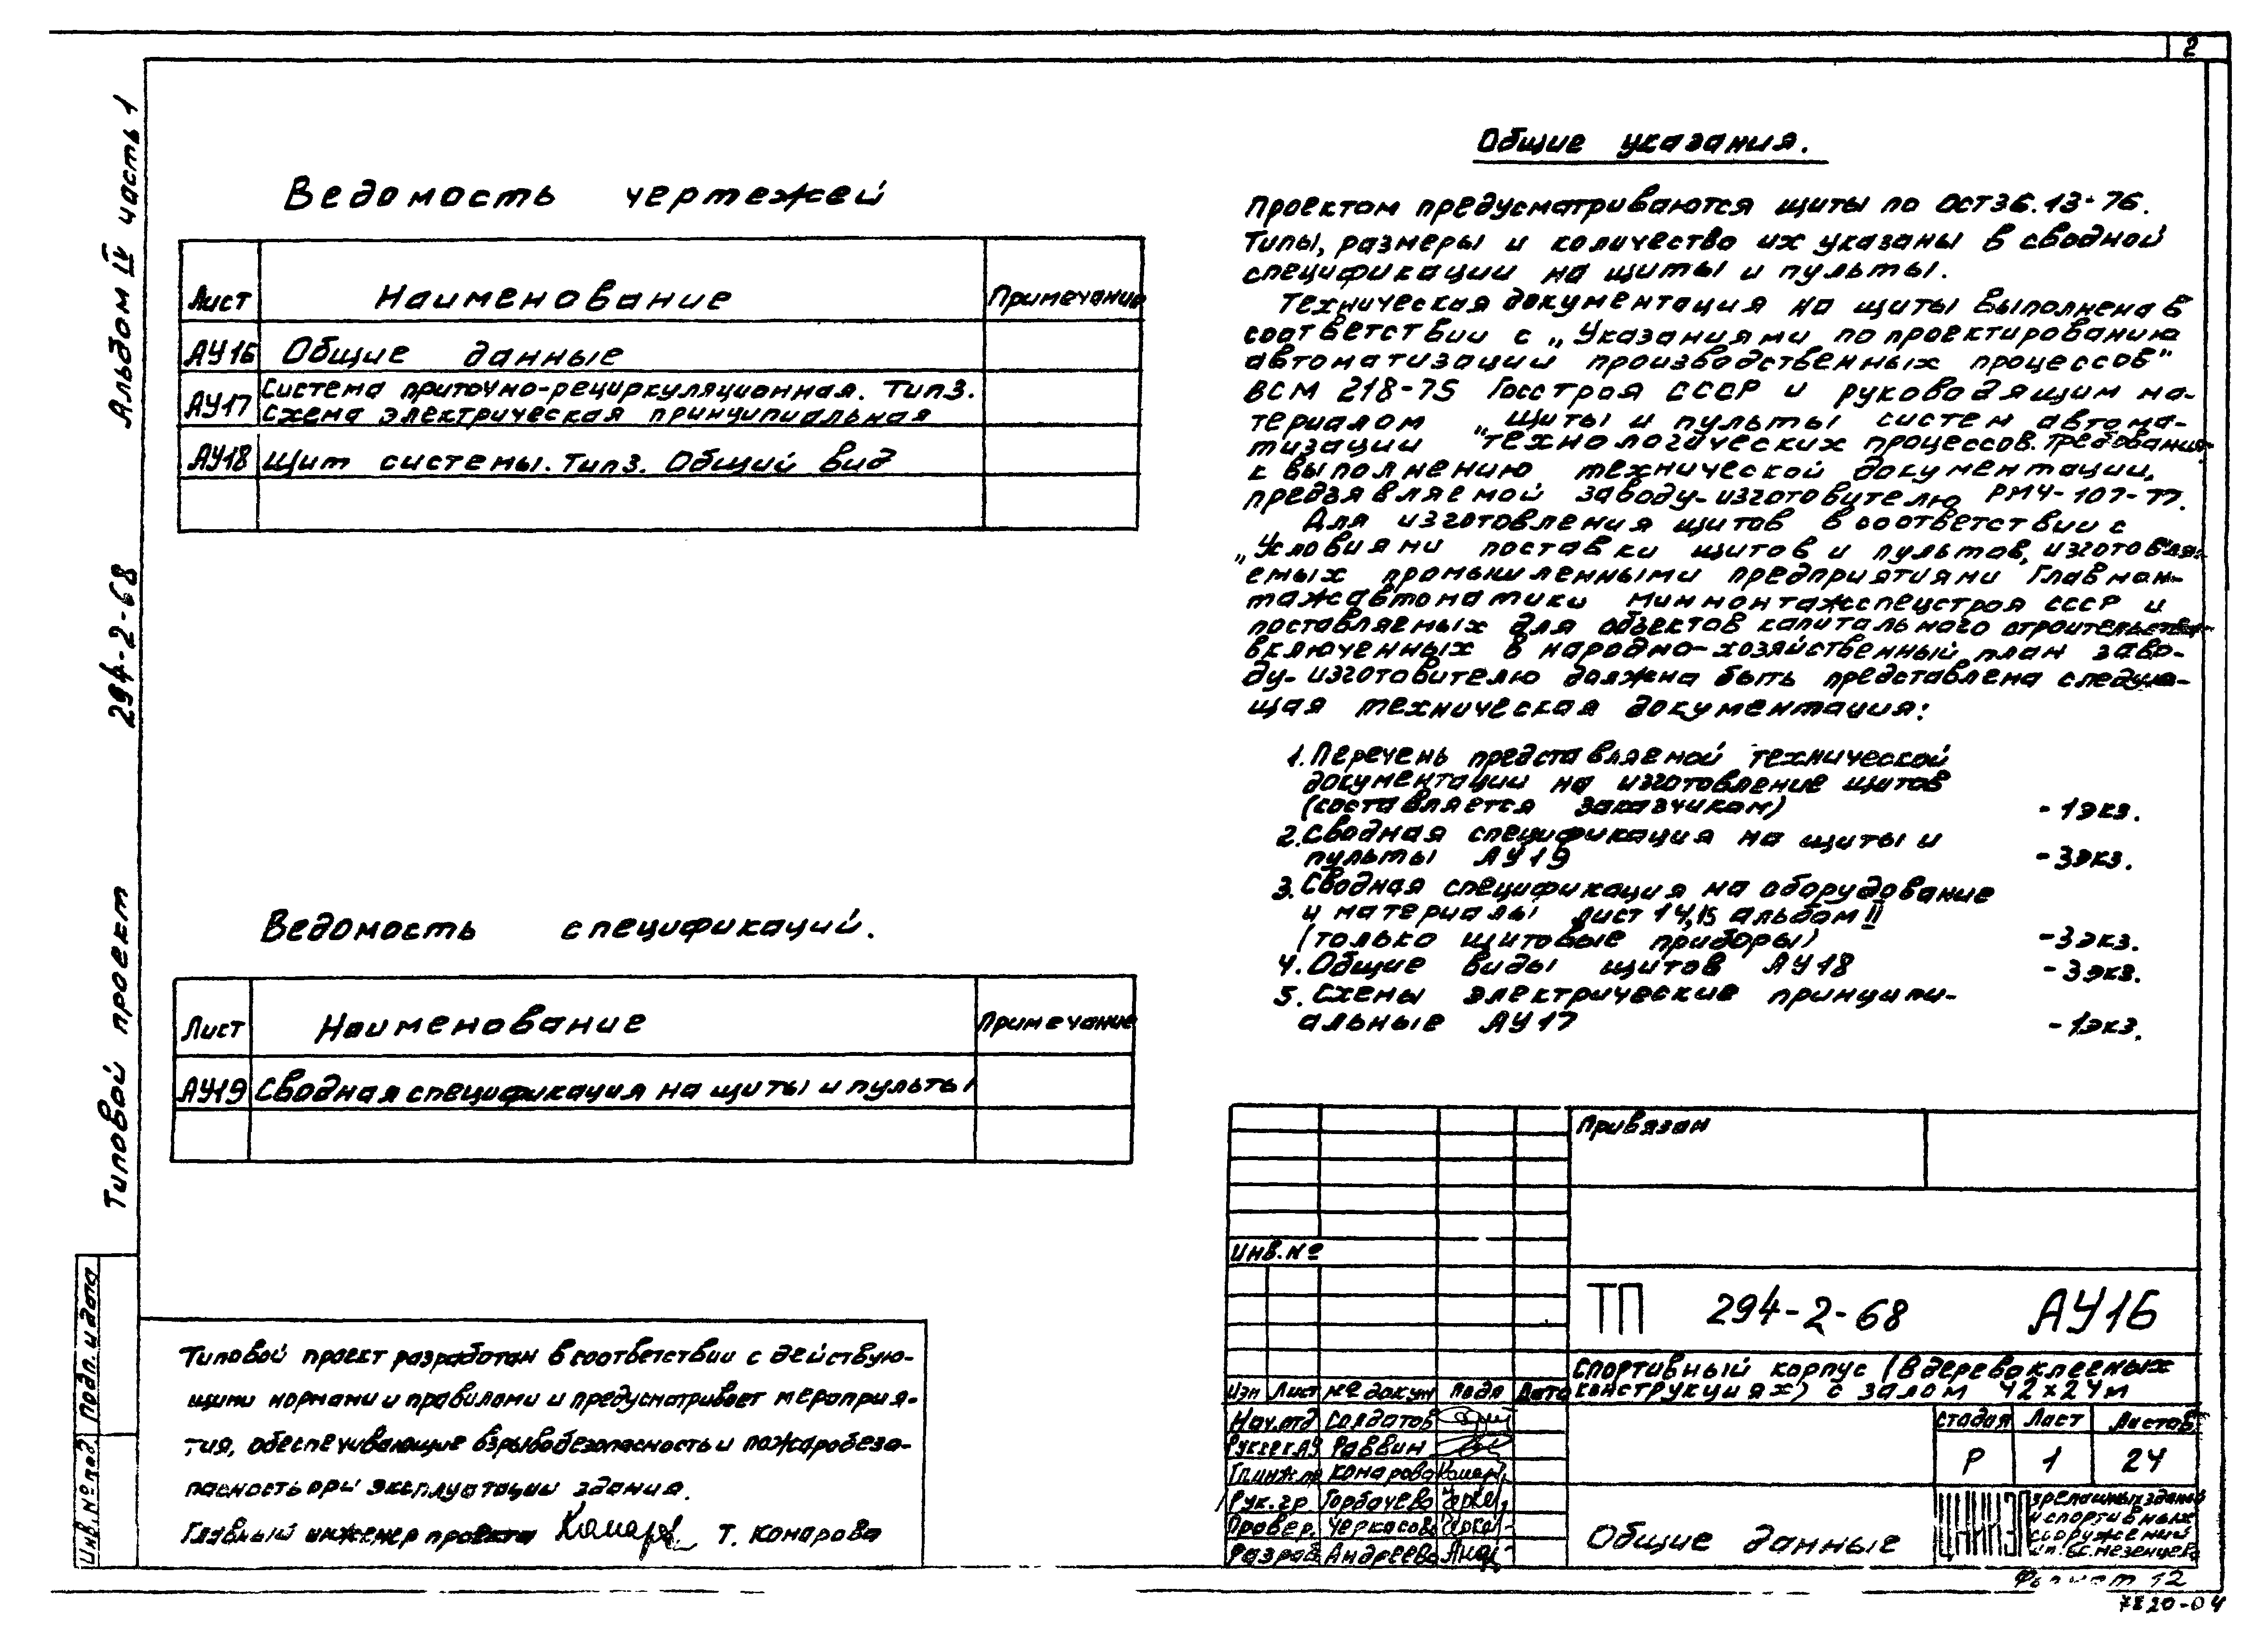 2
Альбом IV часть 1
294-2-68
Типовой проект
Подп. и дата
Инв. № под
Ведомость чертежей
Лист Наименование Примечание
АУ16 Общие данные
АУ17 Система приточно-рециркуляционная. Тип 3.
Схема электрическая принципиальная
АУ18 Щит системы. Тип 3. Общий вид
Ведомость спецификаций.
Лист Наименование Примечание
АУ19 Сводная спецификация на щиты и пульты
Типовой проект разработан в соответствии с действую-
щими нормами и правилами и предусматривает мероприя-
тия, обеспечивающие взрывобезопасность и пожаробезо-
пасность при эксплуатации здания.
Главный инженер проекта Комаров Т. Комарова
Общие указания.
Проектом предусматриваются щиты по ОСТ 36.13-76.
Типы, размеры и количество их указаны в сводной
спецификации на щиты и пульты.
Техническая документация на щиты выполнена в
соответствии с „Указаниями по проектированию
автоматизации производственных процессов"
ВСМ 218-75 Госстроя СССР и руководящим ма-
териалом „Щиты и пульты систем автома-
тизации технологических процессов. Требования
к выполнению технической документации,
предъявляемой заводу-изготовителю РМ4-107-77.
Для изготовления щитов в соответствии с
„Условиями поставки щитов и пультов, изготовля-
емых промышленными предприятиями Главмон-
тажавтоматики Минмонтажспецстроя СССР и
поставляемых для объектов капитального строительства
включенных в народно-хозяйственный план заво-
ду-изготовителю должна быть представлена следую-
щая техническая документация:
1. Перечень представляемой технической
документации на изготовление щитов
(составляется заказчиком) - 1 экз.
2. Сводная спецификация на щиты и
пульты АУ19 - 3 экз.
3. Сводная спецификация на оборудование
и материалы лист 14,15 альбом II
(только щитовые приборы) - 3 экз.
4. Общие виды щитов АУ18 - 3 экз.
5. Схемы электрические принципи-
альные АУ17 - 1 экз.
Привязан
Инв. №
ТП 294-2-68 АУ16
Изм Лист № докум Подп Дата
Спортивный корпус (в деревоклееных
конструкциях) с залом 42х24м
Нач.отд Солдатов
Рук.сек.АУ Раввин
Гл.инж.пр Комарова Комаров
Рук.гр Горбачева
Провер. Черкасова
Разраб Андреева
Стадия Лист Листов
Р 1 24
Общие данные
зрелищных зданий
и спортивных
сооружений
им. Б.С. Мезенцева
Формат 12
7820-04